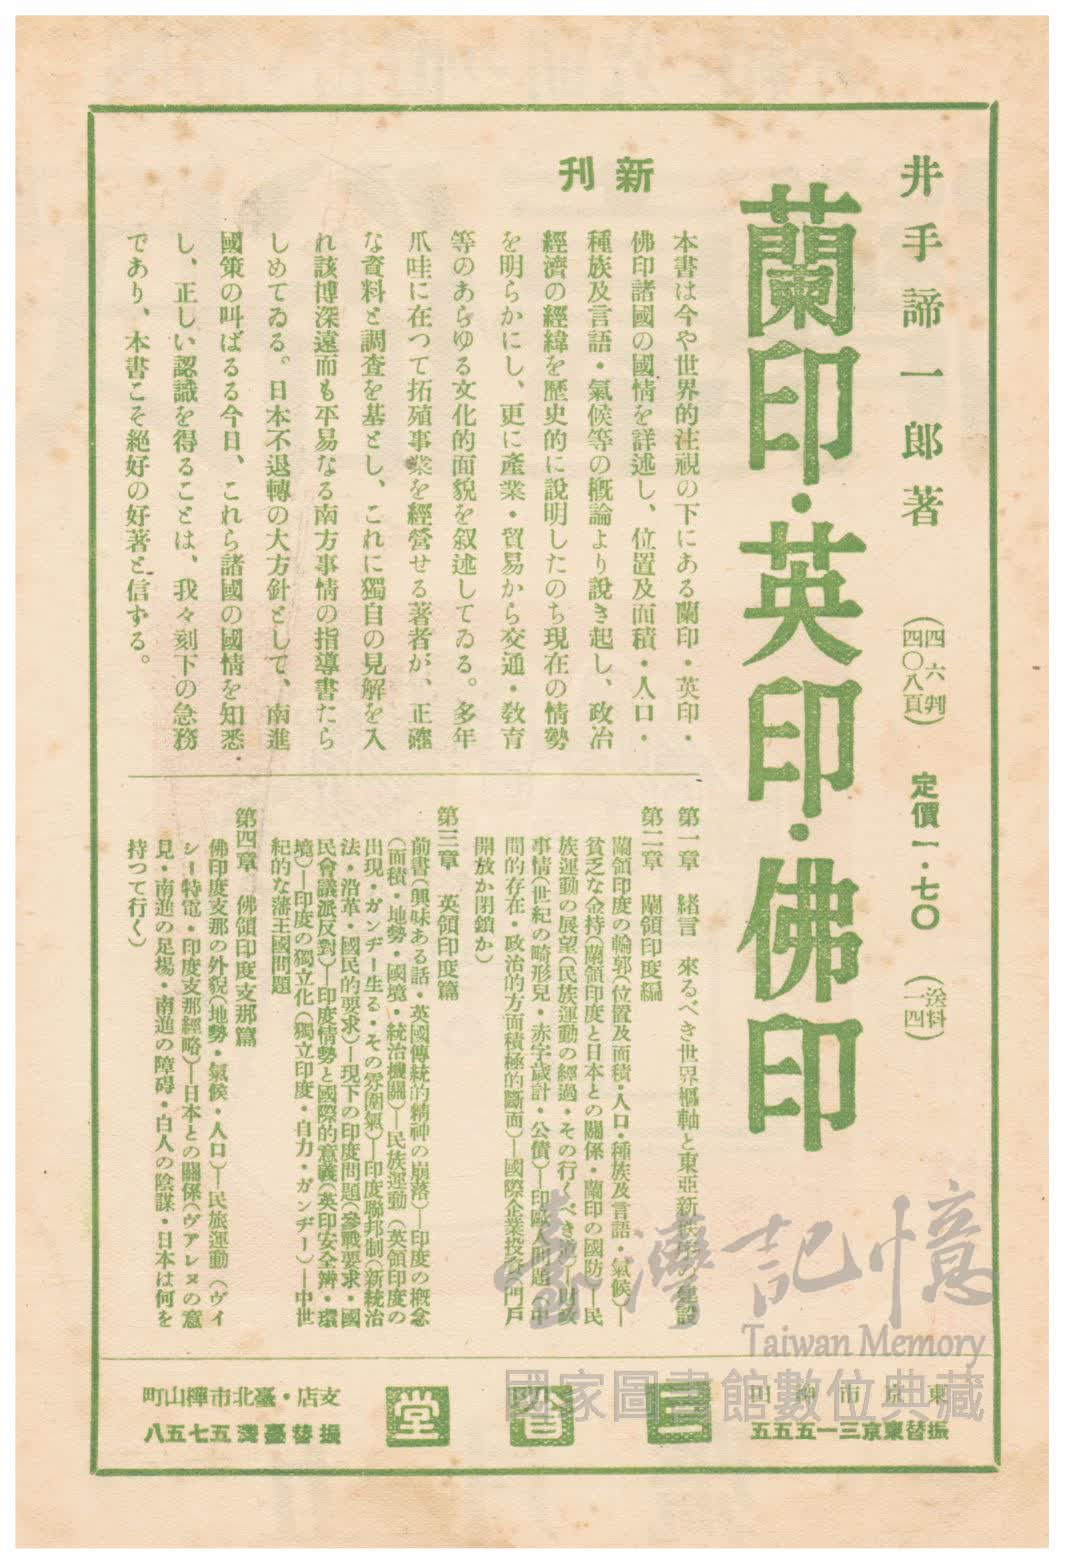 井手諦一郎著
(四六判
四〇八頁)
定價一・七〇
(送料
一四)
蘭印・英印・佛印
新刊
本書は今や世界的注視の下にある蘭印・英印・
佛印諸國の國情を詳述し、位置及面積・人口・
種族及言語・氣候等の概論より說き起し、政治
經濟の經緯を歷史的に說明したのち現在の情勢
を明らかにし、更に產業・貿易から交通・敎育
等のあらゆる文化的面貌を叙述してゐる。多年
爪哇に在つて拓殖事業を經營せる著者が、正確
な資料と調査を基とし、これに獨自の見解を入
れ該博深遠而も平易なる南方事情の指導書たら
しめてゐる。日本不退轉の大方針として、南進
國策の叫ばるる今日、これら諸國の國情を知悉
し、正しい認識を得ることは、我々刻下の急務
であり、本書こそ絕好の好著と信ずる。
第一章 緖言 來るべき世界樞軸と東亞新秩序の建設
第二章 蘭領印度編
蘭領印度の輪郭(位置及面積・人口・種族及言語・氣候)—
貧乏な金持(蘭領印度と日本との關係・蘭印の國防—民
族運動の展望(民族運動の經過・その行くべき道)—財政
事情(世紀の畸形兒・赤字歲計・公債)—印歐人問題(中
間的存在・政治的方面積極的斷面)—國際企業投資(門戶
開放か閉鎖か)
第三章 英領印度篇
前書(興味ある話・英國傳統的精神の崩落)—印度の概念
(面積・地勢・國境・統治機關)—民族運動(英領印度の
出現・ガンヂー生る・その雰圍氣)—印度聯邦制(新統治
法・沿革・國民的要求)—現下の印度問題(參戰要求・國
民會議派反對)—印度情勢と國際的意義(英印安全辨・環
境)—印度の獨立化(獨立印度・自力・ガンヂー)—中世
紀的な藩王國問題
第四章 佛領印度支那篇
佛印度支那の外貌(地勢・氣候・人口)—民旅運動(ヴイ
シー特電・印度支那經略)—日本との關係(ヴアレヌの意
見・南進の足場・南進の障碍・白人の陰謀・日本は何を
持つて行く)
東京市神田
振替東京三一五五五
三省堂
支店・臺北市樺山町
振替臺灣五七五八
臺灣記憶
Taiwan Memory
國家圖書館數位典藏